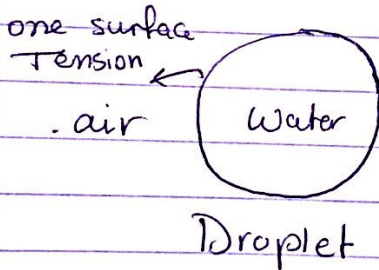 one surface
Tension
. air
Water
Droplet